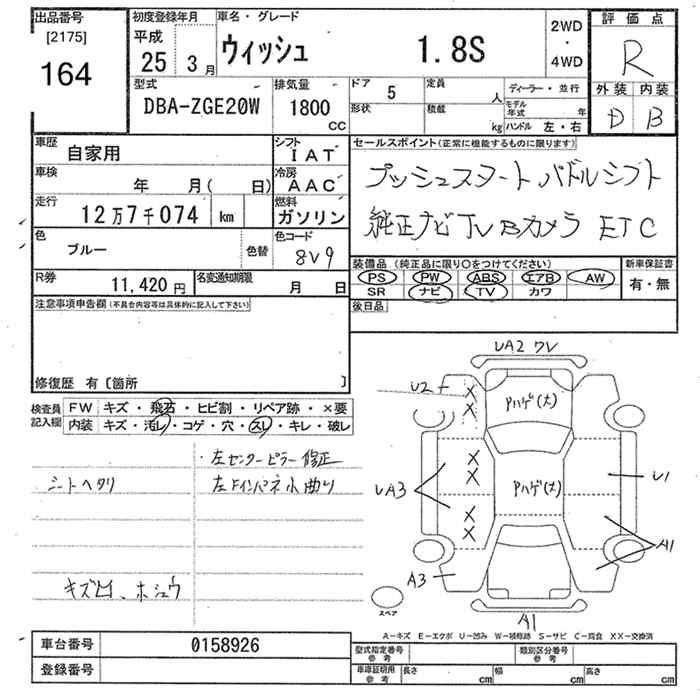 出品番号
[2175]
164
初度登録年月
平成
25 3月
車名・グレード
ウィッシュ 1.8S
2WD
・
4WD
評価点
R
外装 内装
D B
型式
DBA-ZGE20W
排気量
1800
CC
ドア 5
形状
定員 人
積載 kg
ディーラー・並行
モデル年式 年
ハンドル 左・右
車歴
自家用
シフト
IAT
車検
年 月( 日)
冷房
AAC
走行
12万7千074 km
燃料
ガソリン
色
ブルー
色替
色コード
8V9
R券
11,420円
名変通知期限
月 日
セールスポイント(正常に機能するものに限ります)
プッシュスタート パドルシフト
純正ナビ TV Bカメラ ETC
装備品 (純正品に限り○をつけてください)
PS PW ABS エアB AW
SR ナビ TV カワ
新車保証書
有・無
後日品
注意事項申告欄(不具合内容等は具体的に記入して下さい)
修復歴 有〔箇所 〕
検査員記入欄
FW キズ・飛石・ヒビ割・リペア跡・×要
内装 キズ・汚レ・コゲ・穴・スレ・キレ・破レ
・左センターピラー修正
シートヘタリ
左Fインパネ小曲り
キズ凹、ホシュウ
UA2 ワレ
U2
X
X
Pハゲ(大)
X
X
Pハゲ(大)
UA3
X
X
U1
A1
A3
A1
スペア
A-キズ E-エクボ U-凹み W-補修跡 S-サビ C-腐食 XX-交換済
車台番号 0158926
登録番号
型式指定番号
参考
類別区分番号
参考
車庫証明用
参考
長さ cm 幅 cm 高さ cm